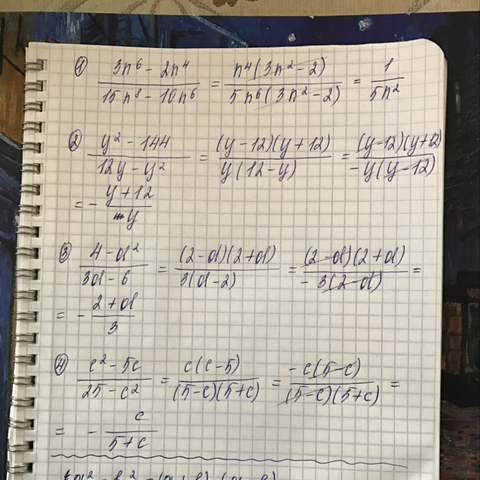 ① (3n⁶ − 2n⁴)/(15n⁸ − 10n⁶) = n⁴(3n² − 2)/5n⁶(3n² − 2) = 1/5n²
② (y² − 144)/(12y − y²) = (y − 12)(y + 12)/y(12 − y) = (y − 12)(y + 12)/−y(y − 12)
= − (y + 12)/y
③ (4 − d²)/(3d − 6) = (2 − d)(2 + d)/3(d − 2) = (2 − d)(2 + d)/−3(2 − d) =
= − (2 + d)/3
④ (c² − 5c)/(25 − c²) = c(c − 5)/(5 − c)(5 + c) = −c(5 − c)/(5 − c)(5 + c) =
= − c/(5 + c)